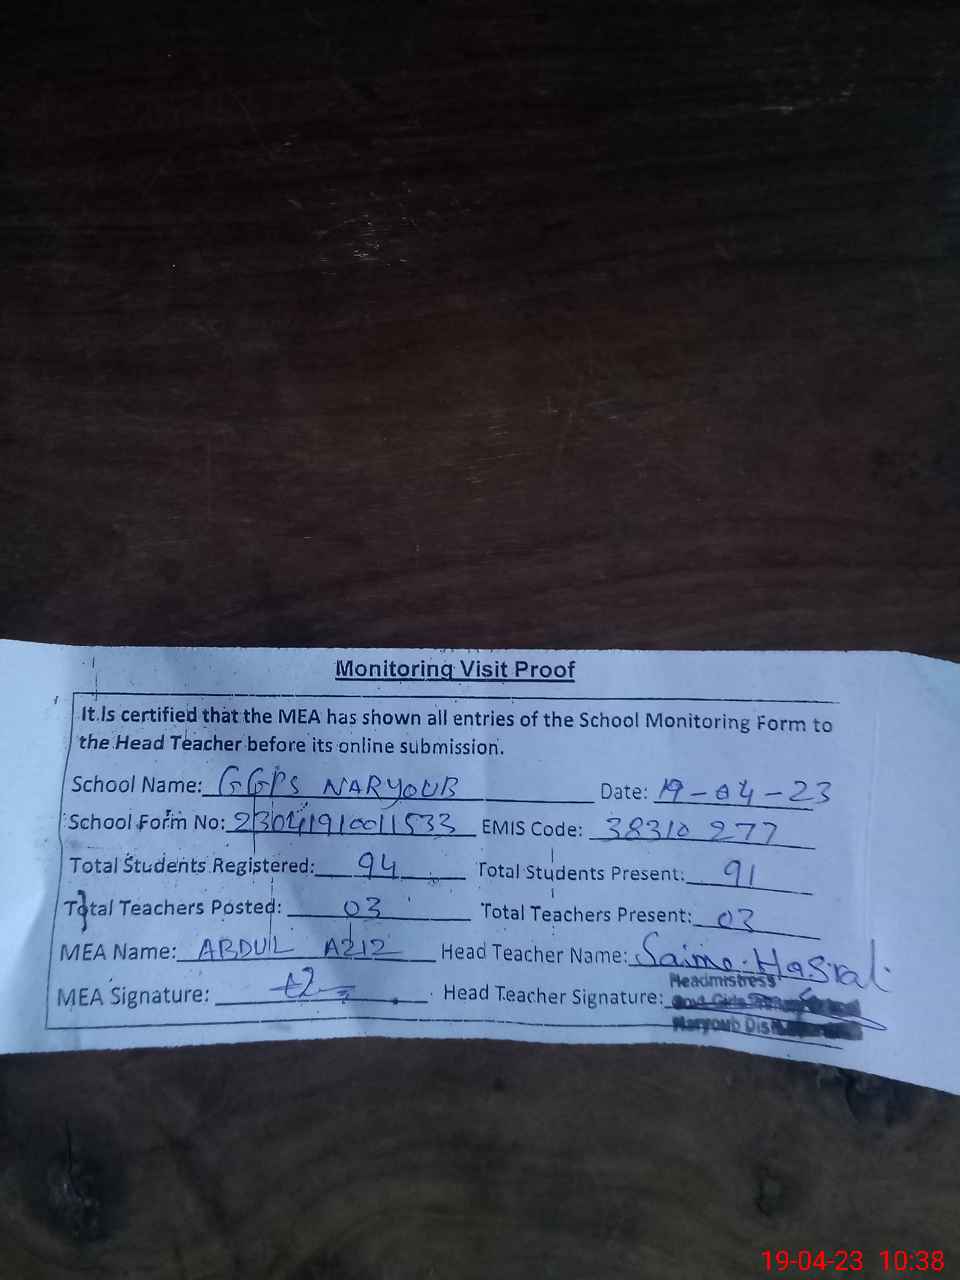 Monitoring Visit Proof
It Is certified that the MEA has shown all entries of the School Monitoring Form to
the Head Teacher before its online submission.
School Name: GGPS NARYOUB Date: 19-04-23
School Form No: 23041910011533 EMIS Code: 38310 277
Total Students Registered: 94 Total Students Present: 91
Total Teachers Posted: 03 Total Teachers Present: 03
MEA Name: ABDUL AZIZ Head Teacher Name: Saima
MEA Signature: Head Teacher Signature:
Headmistress
Govt Girls
Naryoub Dis
19-04-23 10:38